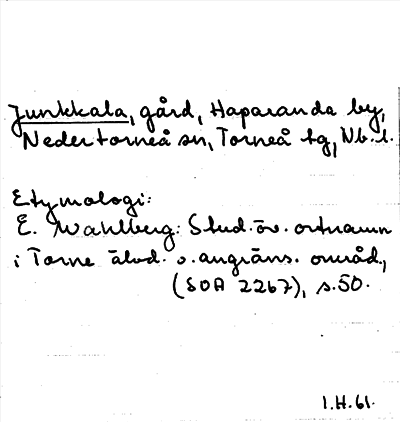 Junkkala, gård, Haparanda by,
Nedertorneå sn, Torneå tg, Nb.l.
Etymologi:
E. Wahlberg: Stud. öv. ortnamn
i Torne älvd. o. angräns. områd.,
(SOA 2267), s.50.
I.H.61.